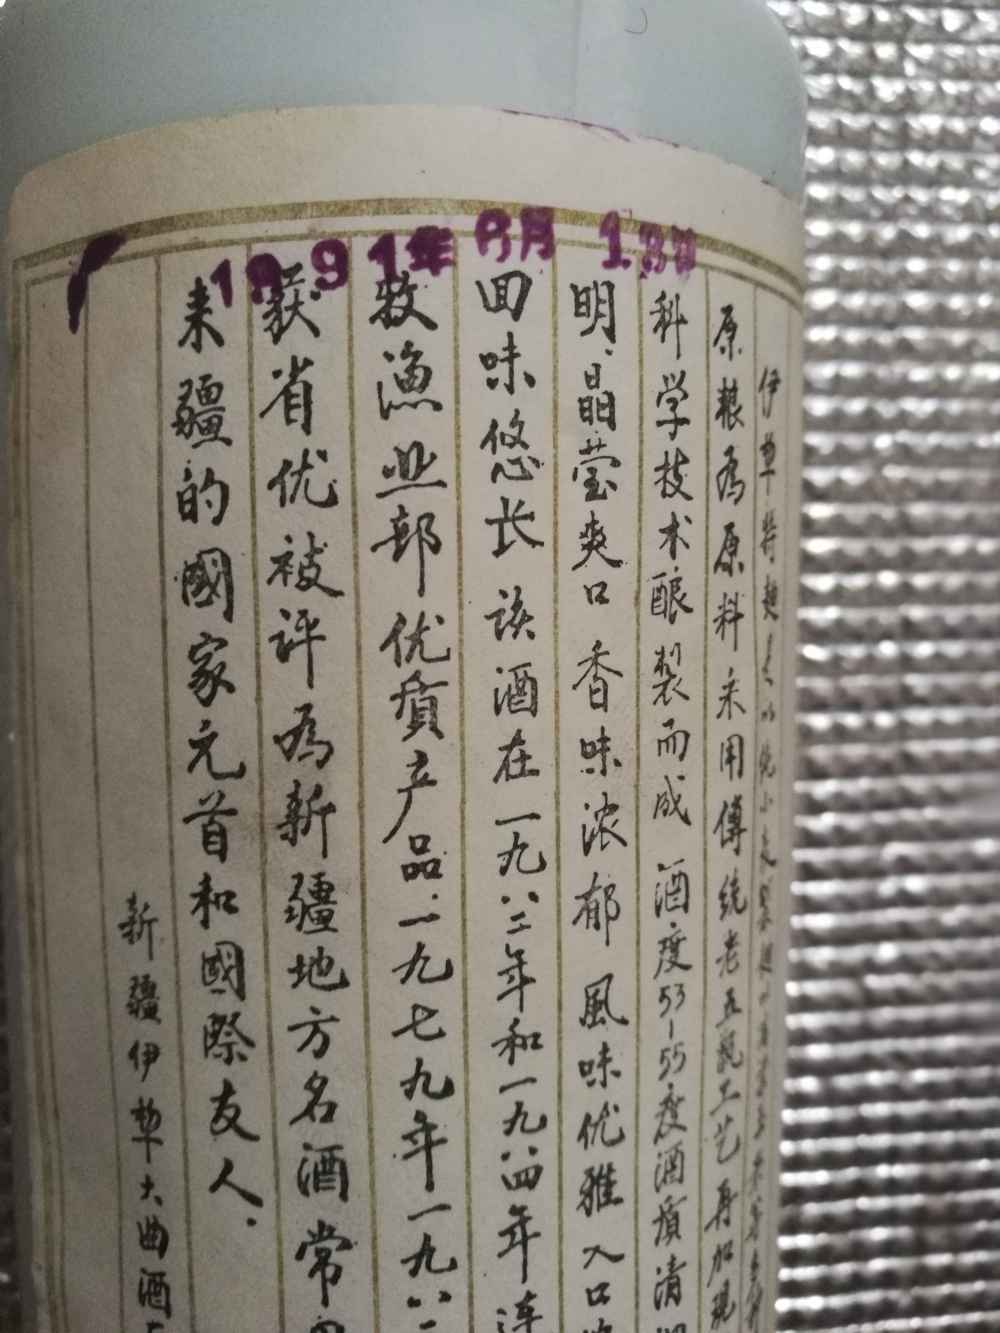 1991年8月13日
伊犁特麯是以纯小麦
原粮为原料采用傳统老五甑工艺再加现
科学技术酿製而成 酒度53-55度酒質清
明、晶莹爽口 香味浓郁 風味优雅 入口
回味悠长 该酒在一九八二年和一九八四年连
牧渔业部优質产品.一九七九年一九八二
获省优被评为新疆地方名酒 常
来疆的國家元首和國際友人.
新疆伊犁大曲酒